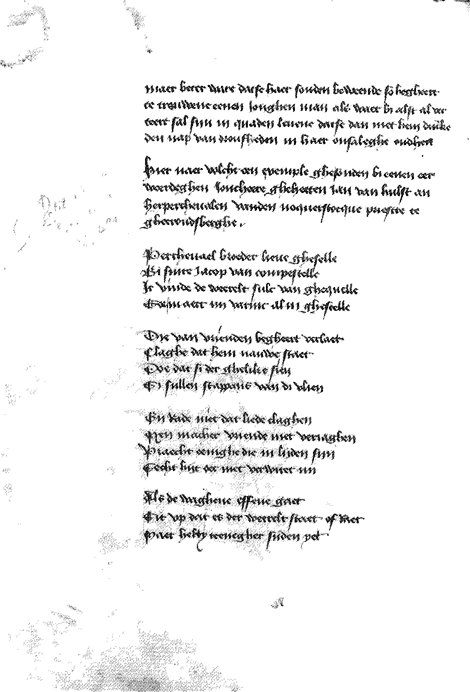 maer beter ware datse haer sonden beweende so begheert
te trouwene eenen Jonghen man als waer bi alst al ver
teert sal sijn in quaden levene datse dan met hem drincke
den nap van droefheden in haer onsaleghe oudheit
Hier naer volcht een exemple ghesonden bi eenen eer
weerdeghen Jonchere gheheeten Jan van hulst an
herperchevalen vanden noquerstocque priestre te
gheeroudsberghe.
Perchevael broeder lieve gheselle
Bi sinte Jacop van compostelle
Ic vinde de weerelt sulc van ghequelle
al in ghestelle
Die van vrienden begheert verlaet
Claghe dat hem nauwe staet
Doe dat si der ghelike sien
Si sullen stappans van di vlien
En rade niet dat liede claghen
Men macher vriende met veriaghen
in lijden sijn
niet
Als de waghene effene gaet
Sit up dat es der weerelt staet of raet
Maer